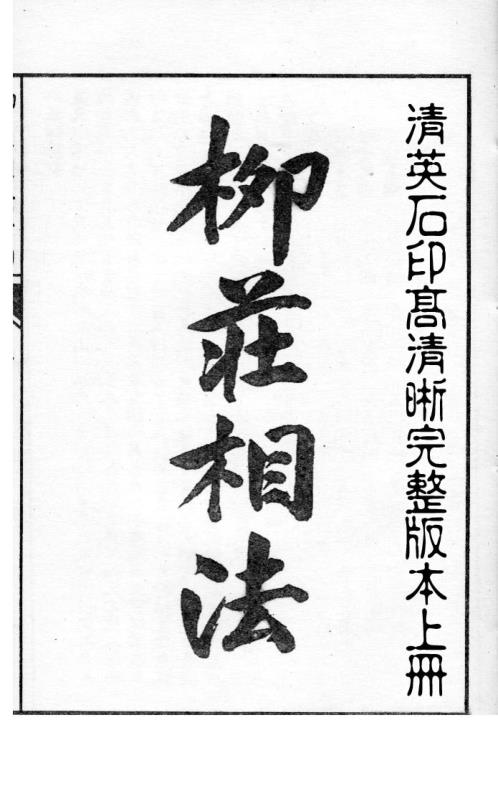 清英石印高清晰完整版本上冊
柳莊相法